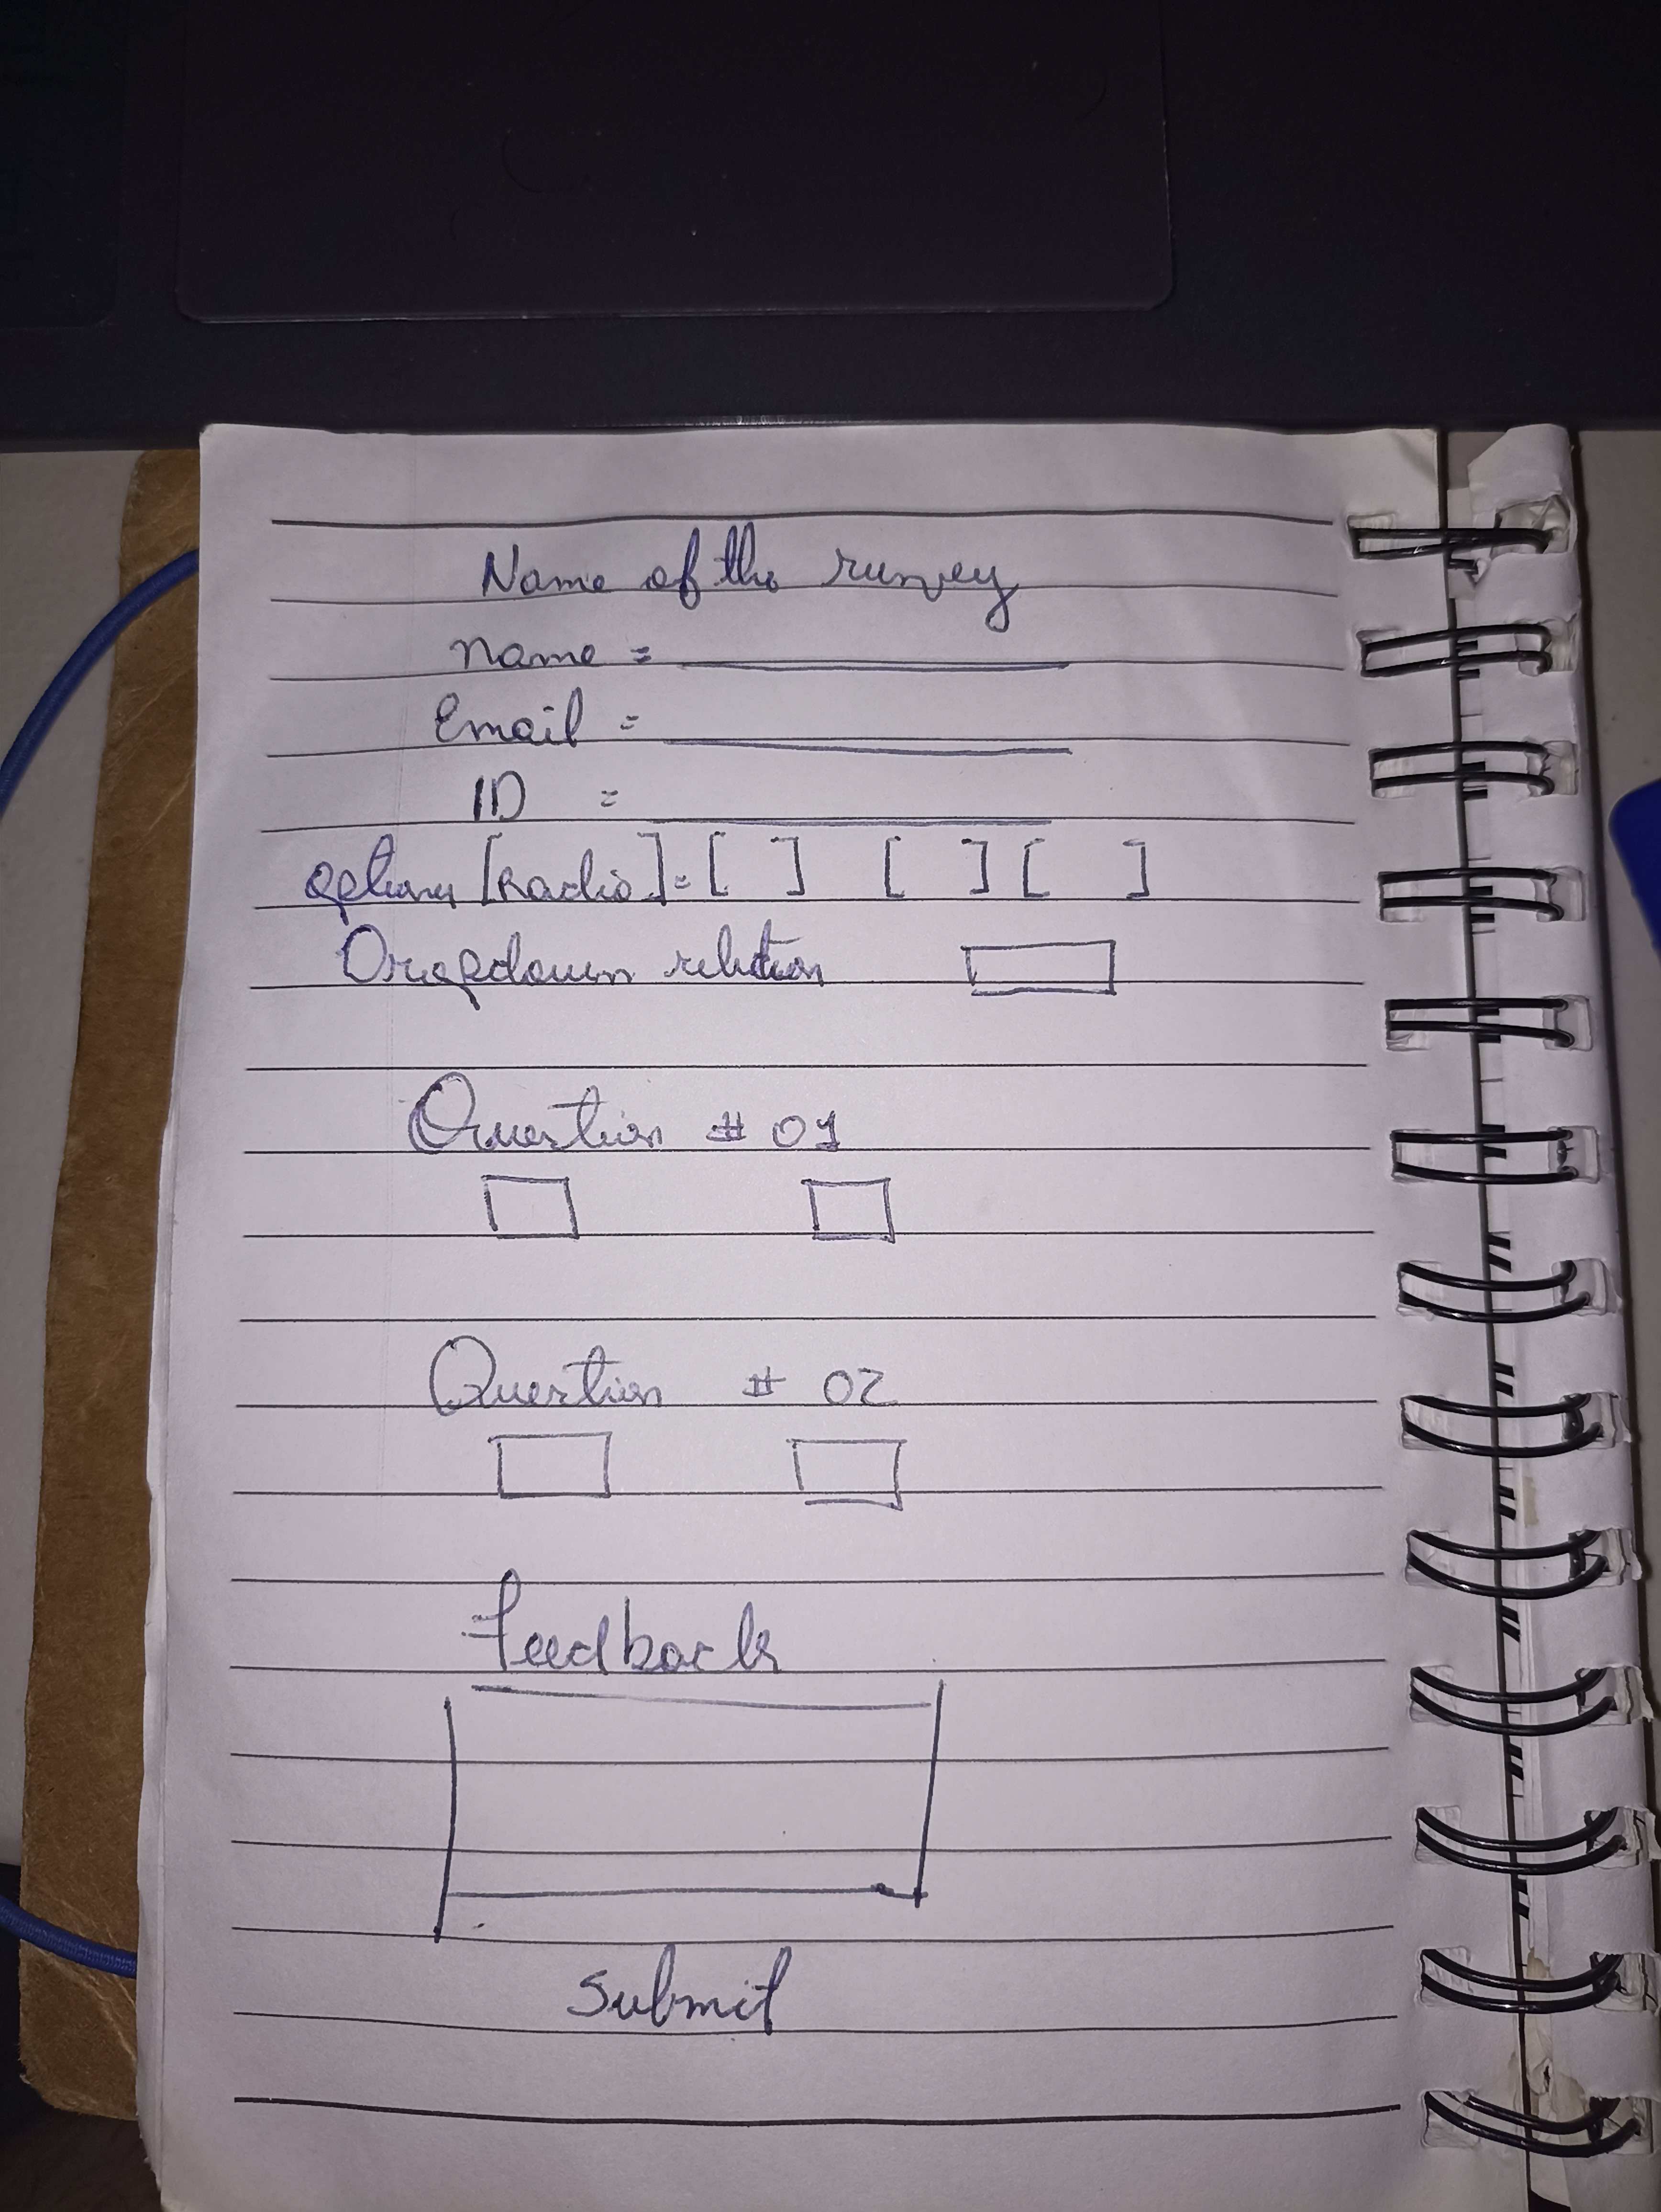 Name of the survey
name =
Email =
ID =
options [Radio] = [ ] [ ] [ ]
Dropdown selection
Question # 01
Question # 02
Feedback
Submit